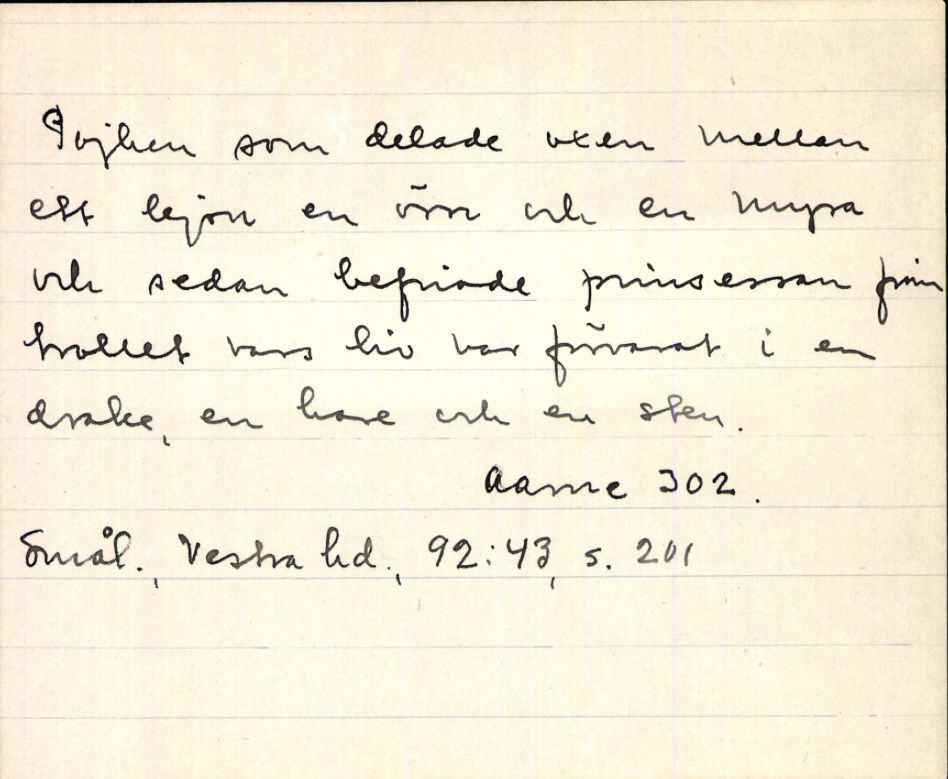 Pojken som delade oxen mellan
ett lejon en örn och en myra
och sedan befriade prinsessan från
trollet vars liv var förvarat i en
drake, en hare och en sten.
Aarne 302.
Smål., Vestra hd., 92:43, s. 201